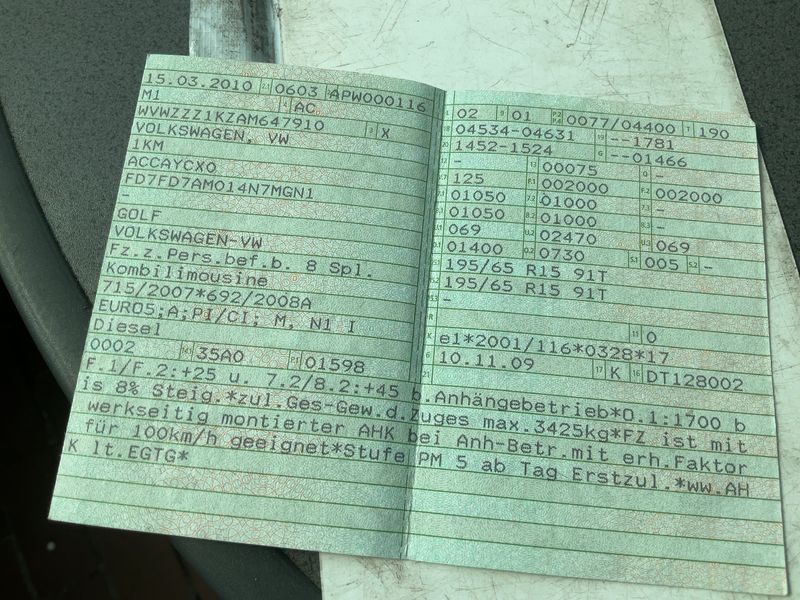 15.03.2010 0603 APW000116
M1 AC
WVWZZZ1KZAM647910 X
VOLKSWAGEN, VW
1KM
ACCAYCX0
FD7FD7AM014N7MGN1
-
GOLF
VOLKSWAGEN-VW
Fz.z.Pers.bef.b. 8 Spl.
Kombilimousine
715/2007*692/2008A
EURO5;A;PI/CI; M, N1 I
Diesel
0002 35A0 01598
02 01 0077/04400 190
04534-04631 --1781
1452-1524 --01466
- 00075 -
125 002000 002000
01050 01000 -
01050 01000 -
069 02470 069
01400 0730 005 -
195/65 R15 91T
195/65 R15 91T
-
0
e1*2001/116*0328*17
10.11.09 K DT128002
F.1/F.2:+25 u. 7.2/8.2:+45 b.Anhängebetrieb*O.1:1700 b
is 8% Steig.*zul.Ges-Gew.d.Zuges max.3425kg*FZ ist mit
werkseitig montierter AHK bei Anh-Betr.mit erh.Faktor
für 100km/h geeignet*Stufe PM 5 ab Tag Erstzul.*ww.AH
K lt.EGTG*